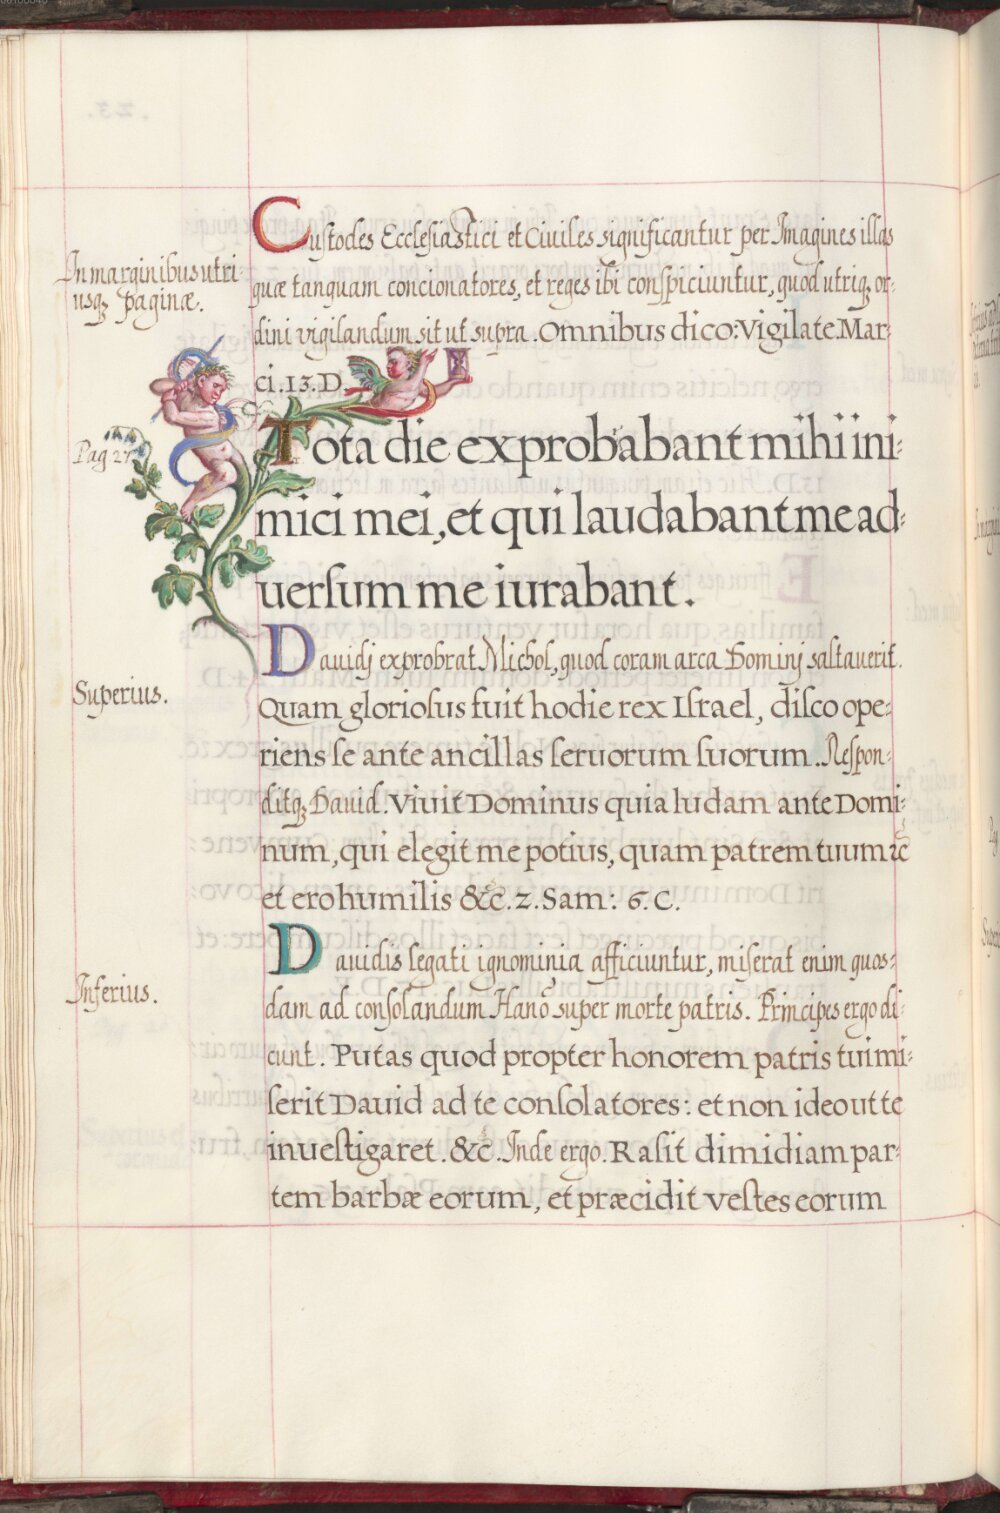 Custodes Ecclesiastici et Ciuiles significantur per Imagines illas
In marginibus utri-
usq; paginæ.
quæ tanquam concionatores, et reges ibi conspiciuntur, quod utriq; or-
dini vigilandum sit ut supra. Omnibus dico: Vigilate. Mar-
ci. 13. D.
Pag 27
Tota die exprobabant mihi ini-
mici mei, et qui laudabant me ad-
uersum me iurabant.
Dauidj exprobrat Michol, quod coram arca Dominj saltauerit.
Superius.
Quam gloriosus fuit hodie rex Israel, disco ope-
riens se ante ancillas seruorum suorum. Respon-
ditq; Dauid. Viuit Dominus quia ludam ante Domi-
num, qui elegit me potius, quam patrem tuum &c
et ero humilis &c. 2. Sam: 6. C.
Dauidis legati ignominia afficiuntur, miserat enim quos-
Inferius.
dam ad consolandum Hanō super morte patris. Principes ergo di-
cunt. Putas quod propter honorem patris tui mi-
serit Dauid ad te consolatores: et non ideo ut te
inuestigaret. &c. Inde ergo. Rasit dimidiam par-
tem barbæ eorum, et præcidit vestes eorum